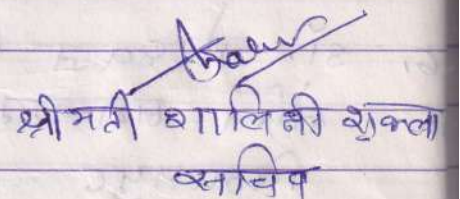 श्रीमती शालिनी शुक्ला
सचिव